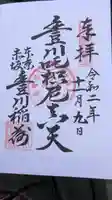 奉拝
令和二年
十一月九日
豊川吒枳尼真天
東京赤坂
豊川稲荷